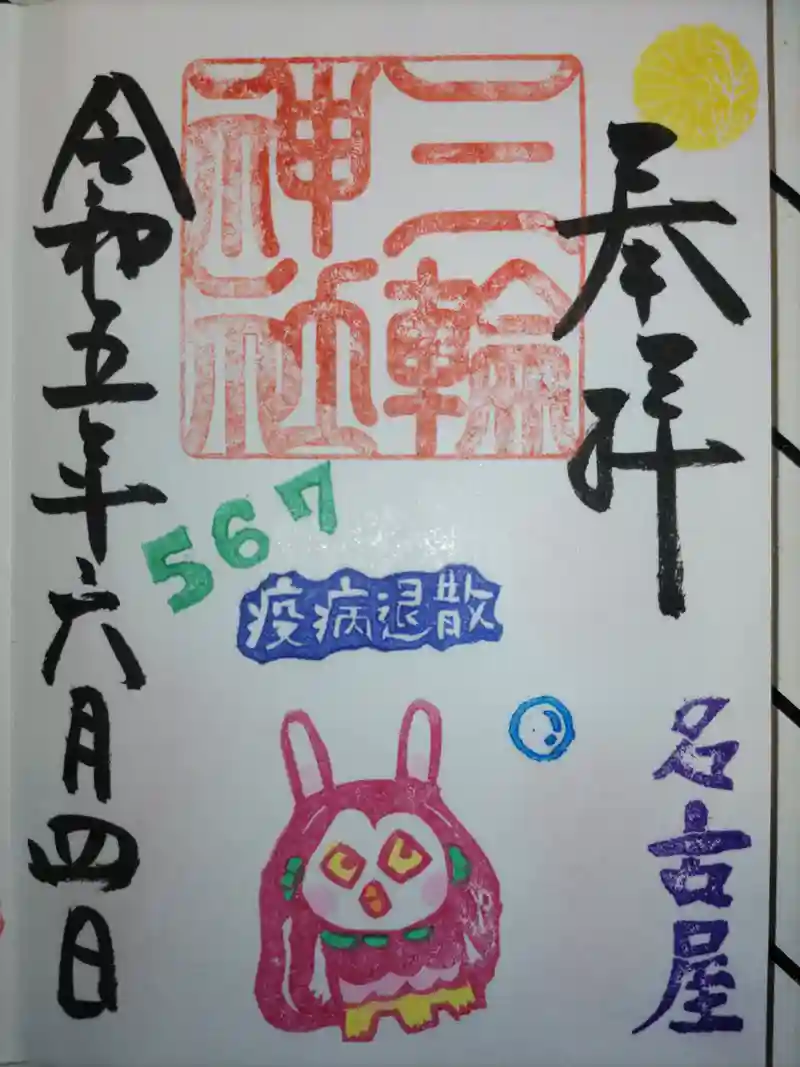 奉拝
三輪
神社
567
疫病退散
名古屋
令和五年六月四日